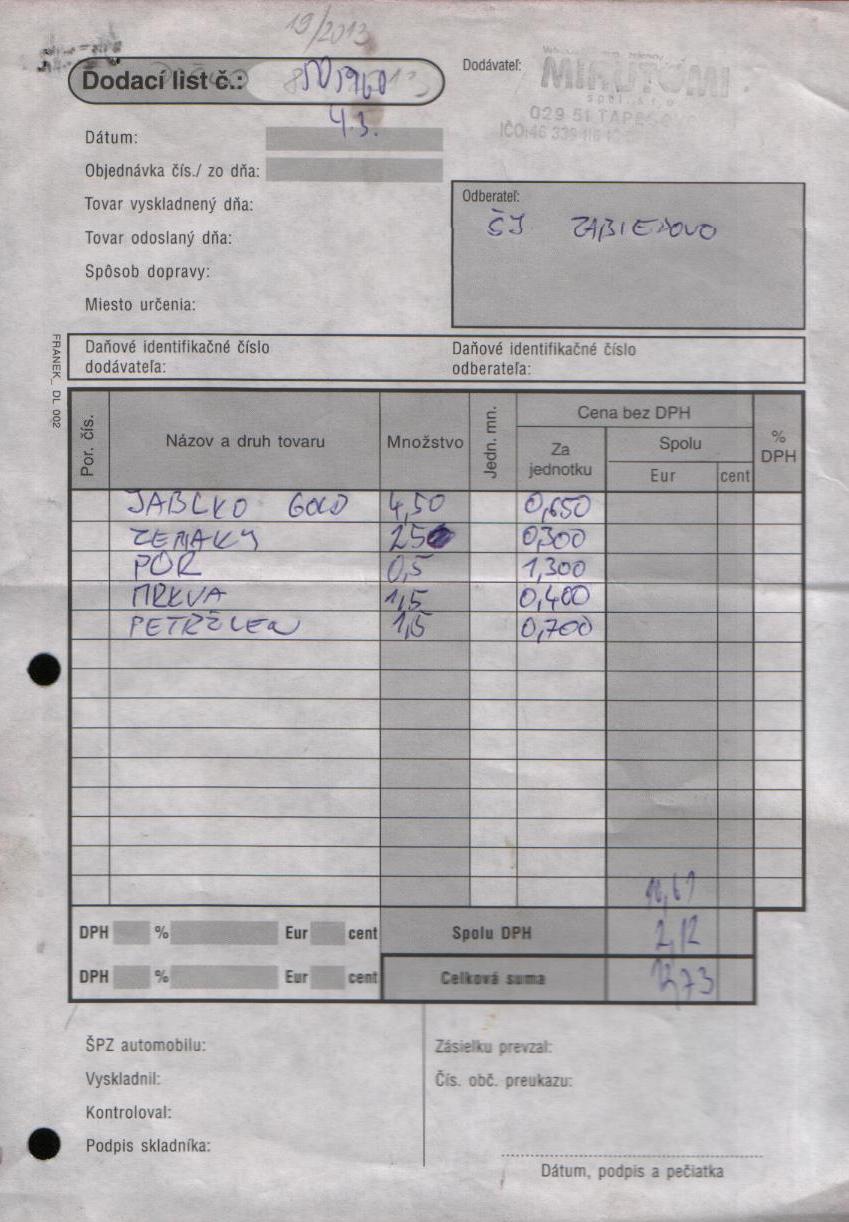 19/2013
Dodací list č.:
Dodávateľ:
MIRUTOMI
spol. s r.o.
029 51
4.3.
Dátum:
Objednávka čís./ zo dňa:
Tovar vyskladnený dňa:
Tovar odoslaný dňa:
Spôsob dopravy:
Miesto určenia:
Odberateľ:
ŠJ ZABIEDOVO
Daňové identifikačné číslo
dodávateľa:
Daňové identifikačné číslo
odberateľa:
FRANEK_ DL 002
Por. čís.
Názov a druh tovaru
Množstvo
Jedn. mn.
Cena bez DPH
Za
jednotku
Spolu
Eur cent
%
DPH
JABLKO GOLD 4,50 0,650
ZEMAKY 25 0,300
POR 0,5 1,300
MRKVA 1,5 0,400
PETRŽLEN 1,5 0,700
DPH % Eur cent Spolu DPH 2,12
DPH % Eur cent Celková suma 12,73
ŠPZ automobilu:
Vyskladnil:
Kontroloval:
Podpis skladníka:
Zásielku prevzal:
Čís. obč. preukazu:
Dátum, podpis a pečiatka